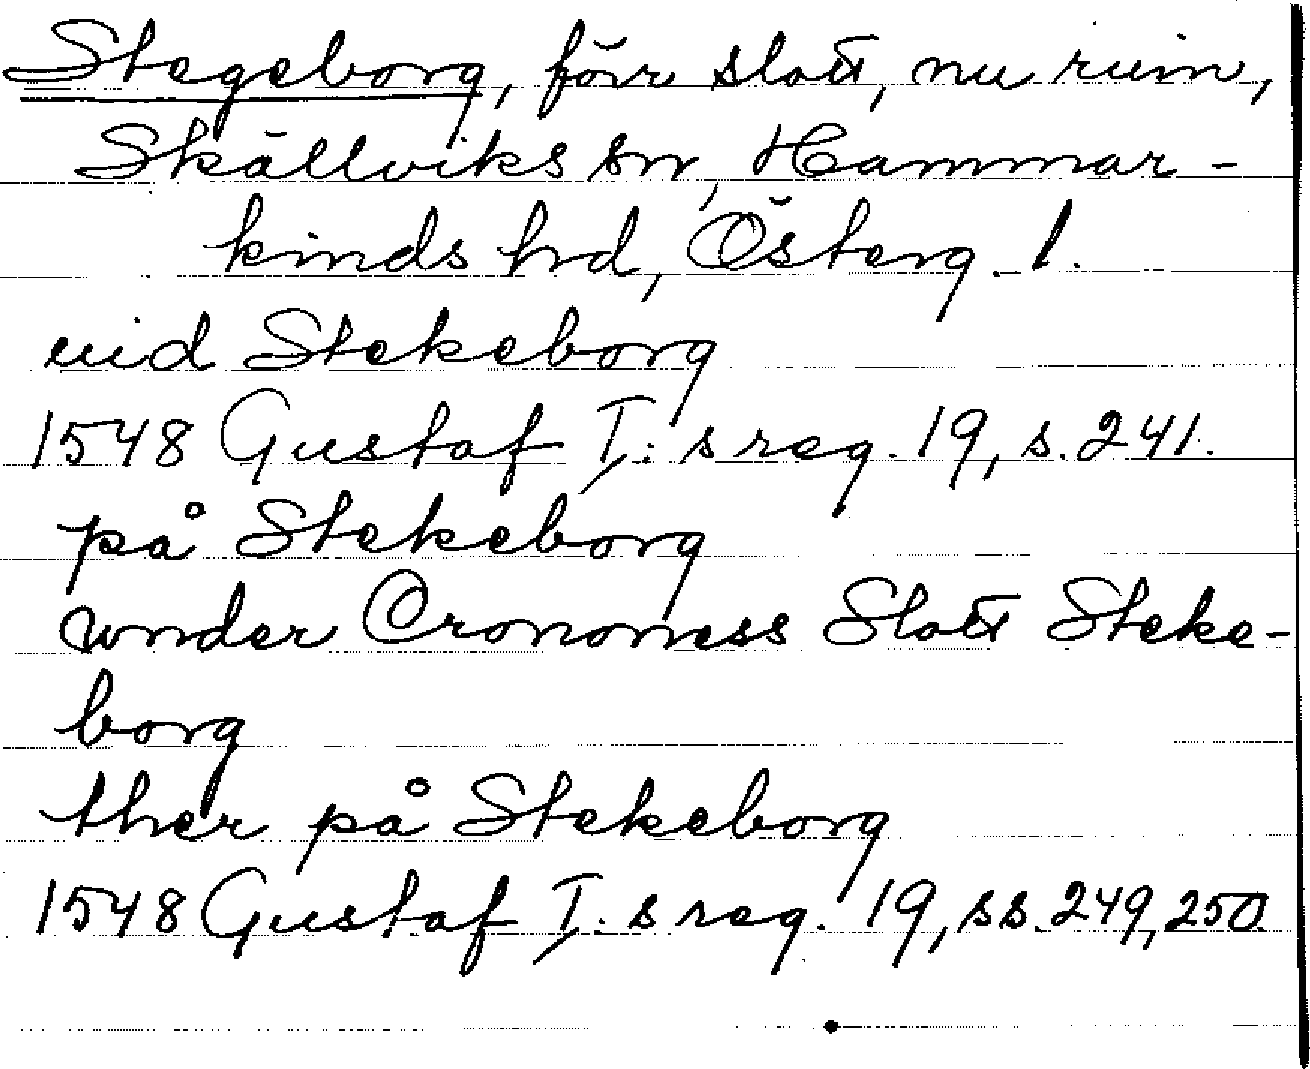 Stegeborg, förr slott, nu ruin,
Skällviks sn, Hammar-
kinds hd, Österg. l.
uid Stekeborg
1548 Gustaf I:s reg. 19, s. 241.
på Stekeborg
wnder Crononess Slott Steke-
borg
ther på Stekeborg
1548 Gustaf I:s reg. 19, ss. 249, 250.